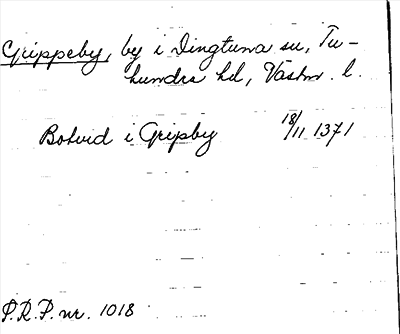 Grippeby, by i Dingtuna sn, Tu-
hundra hd, Västm. l.
Botvid i Gripby 18/11 1371
P.R.P. nr. 1018